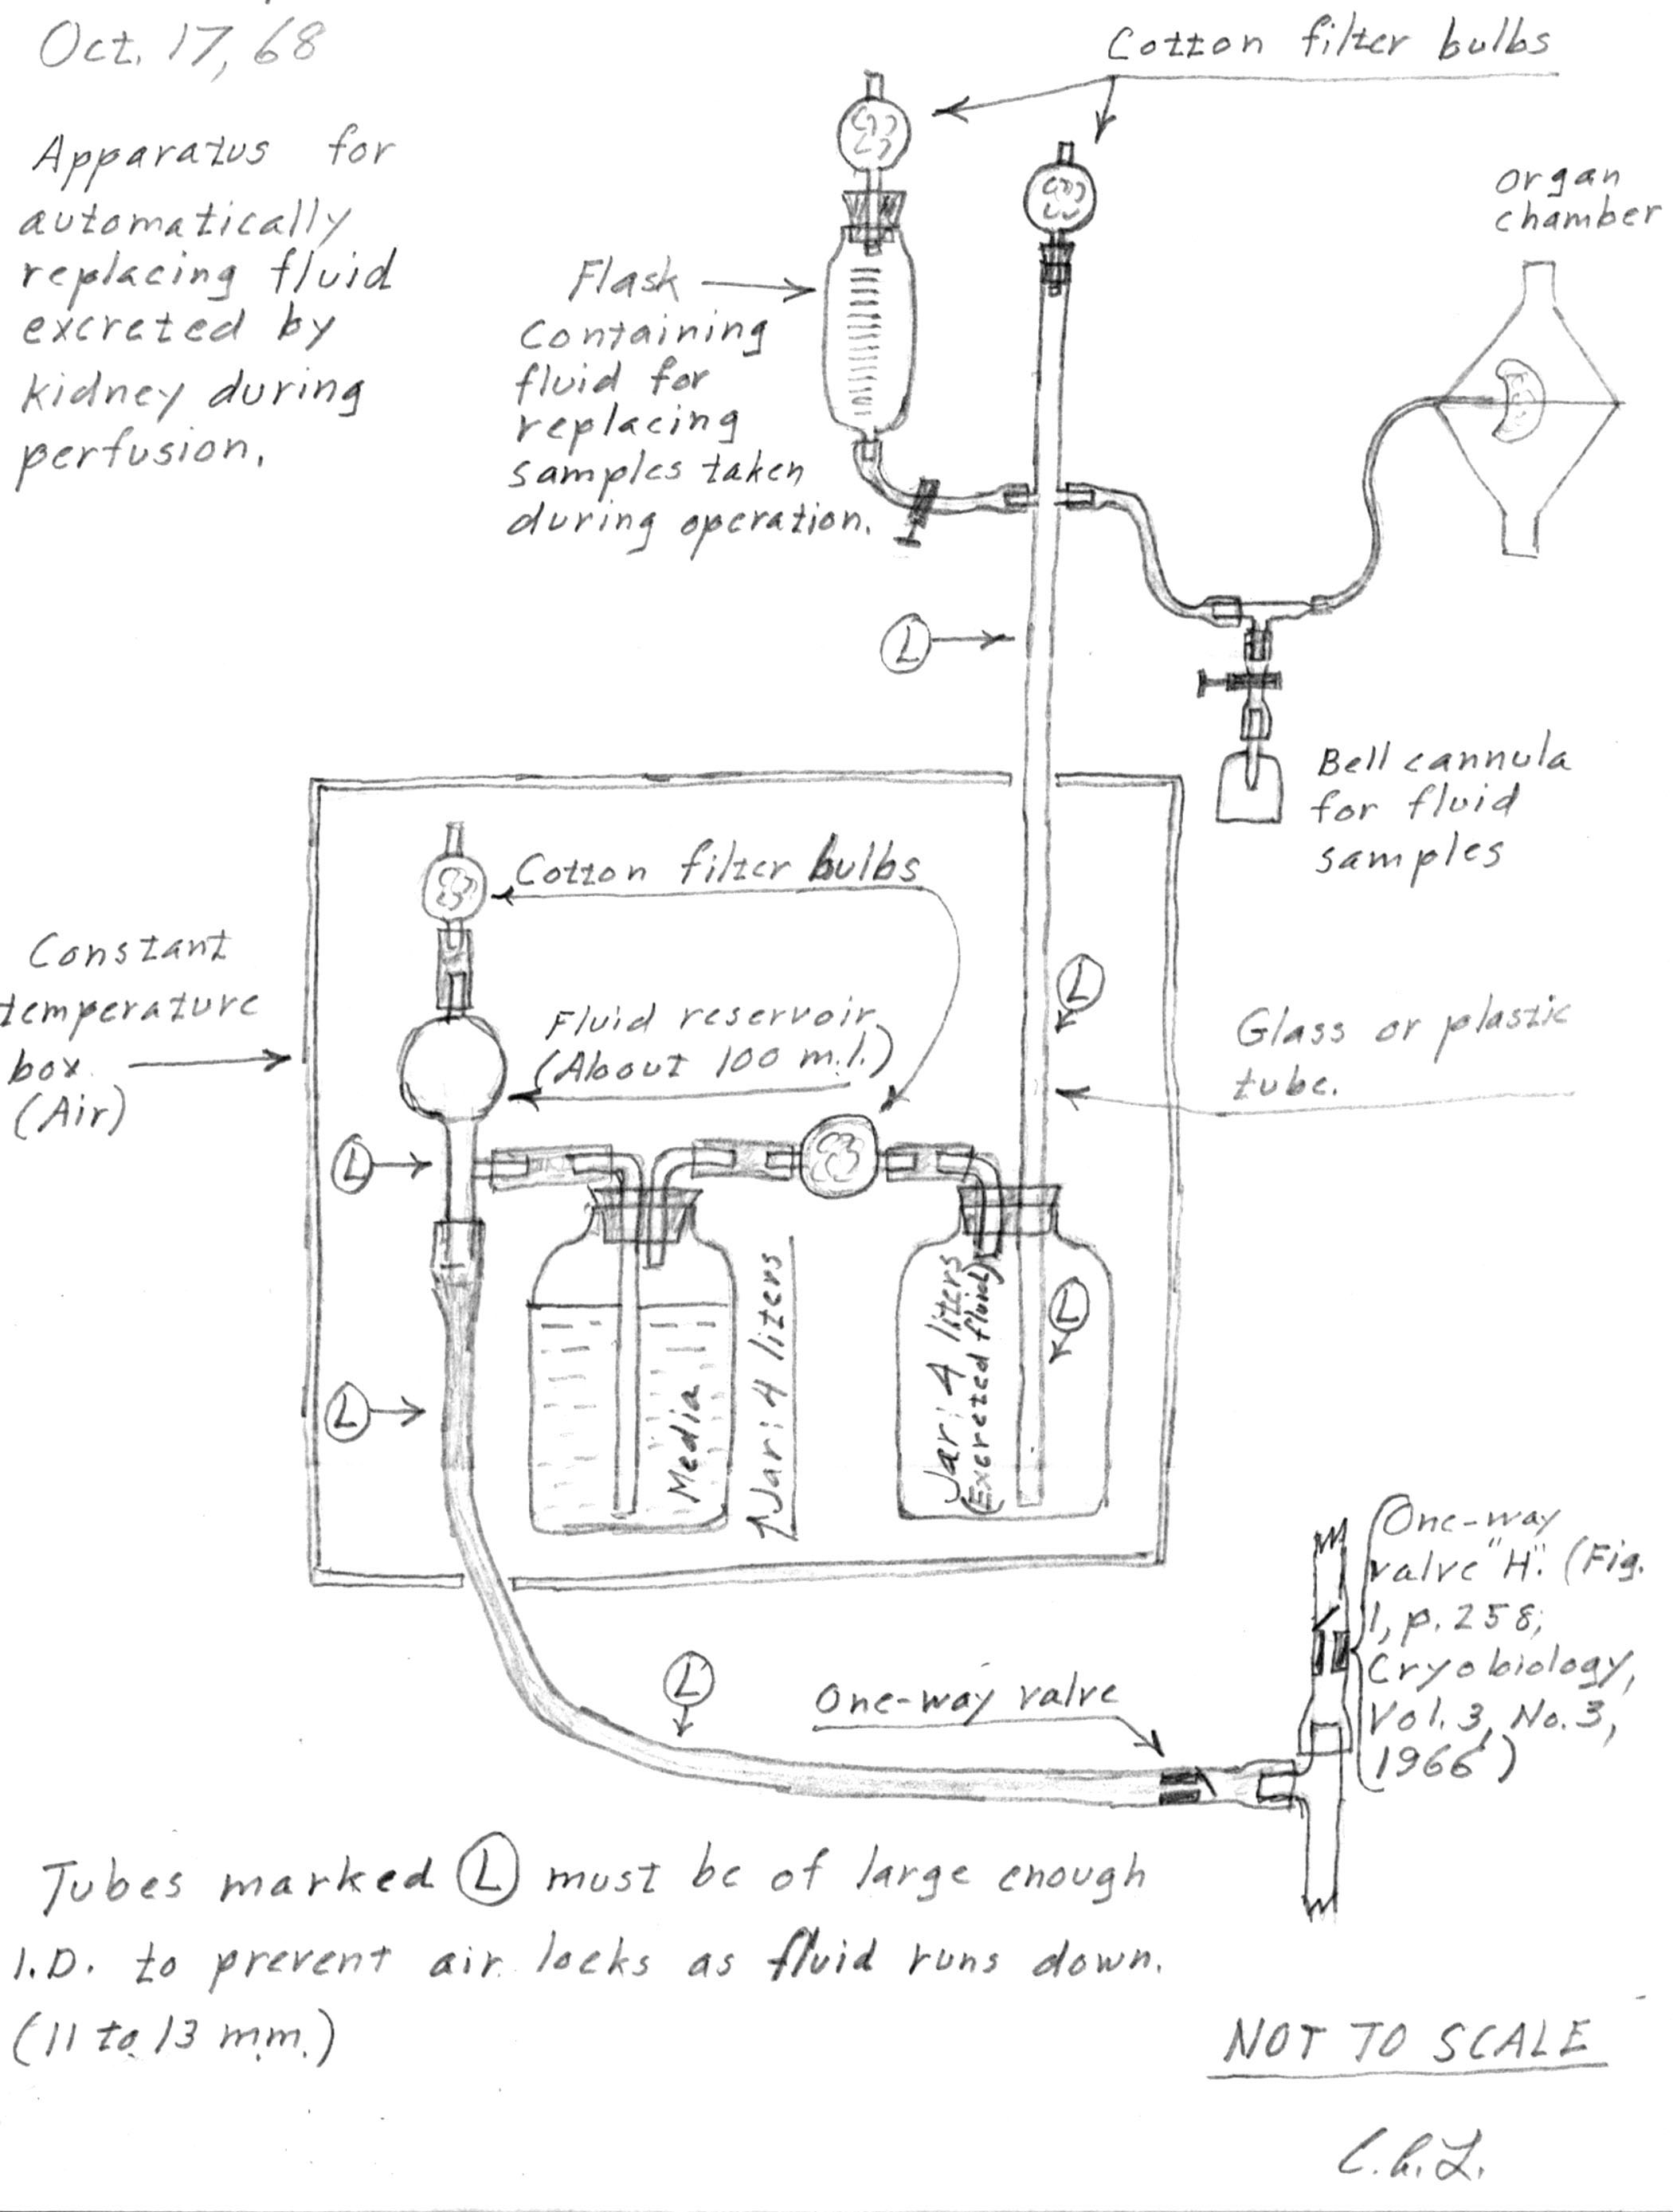 Oct. 17, 68
Apparatus for
automatically
replacing fluid
excreted by
kidney during
perfusion.
Cotton filter bulbs
organ
chamber
Flask
Containing
fluid for
replacing
samples taken
during operation.
L
Bell cannula
for fluid
samples
Cotton filter bulbs
Constant
temperature
box
(Air)
Fluid reservoir
(About 100 m.l.)
L
Glass or plastic
tube.
L
L
L
Media
Jar: 4 liters
Jar: 4 liters
(Excreted fluid)
One-way
valve "H". (Fig.
1, p. 258;
Cryobiology,
Vol. 3, No. 3,
1966)
L
One-way valve
Tubes marked L must be of large enough
I.D. to prevent air locks as fluid runs down.
(11 to 13 mm.)
NOT TO SCALE
C.A.L.